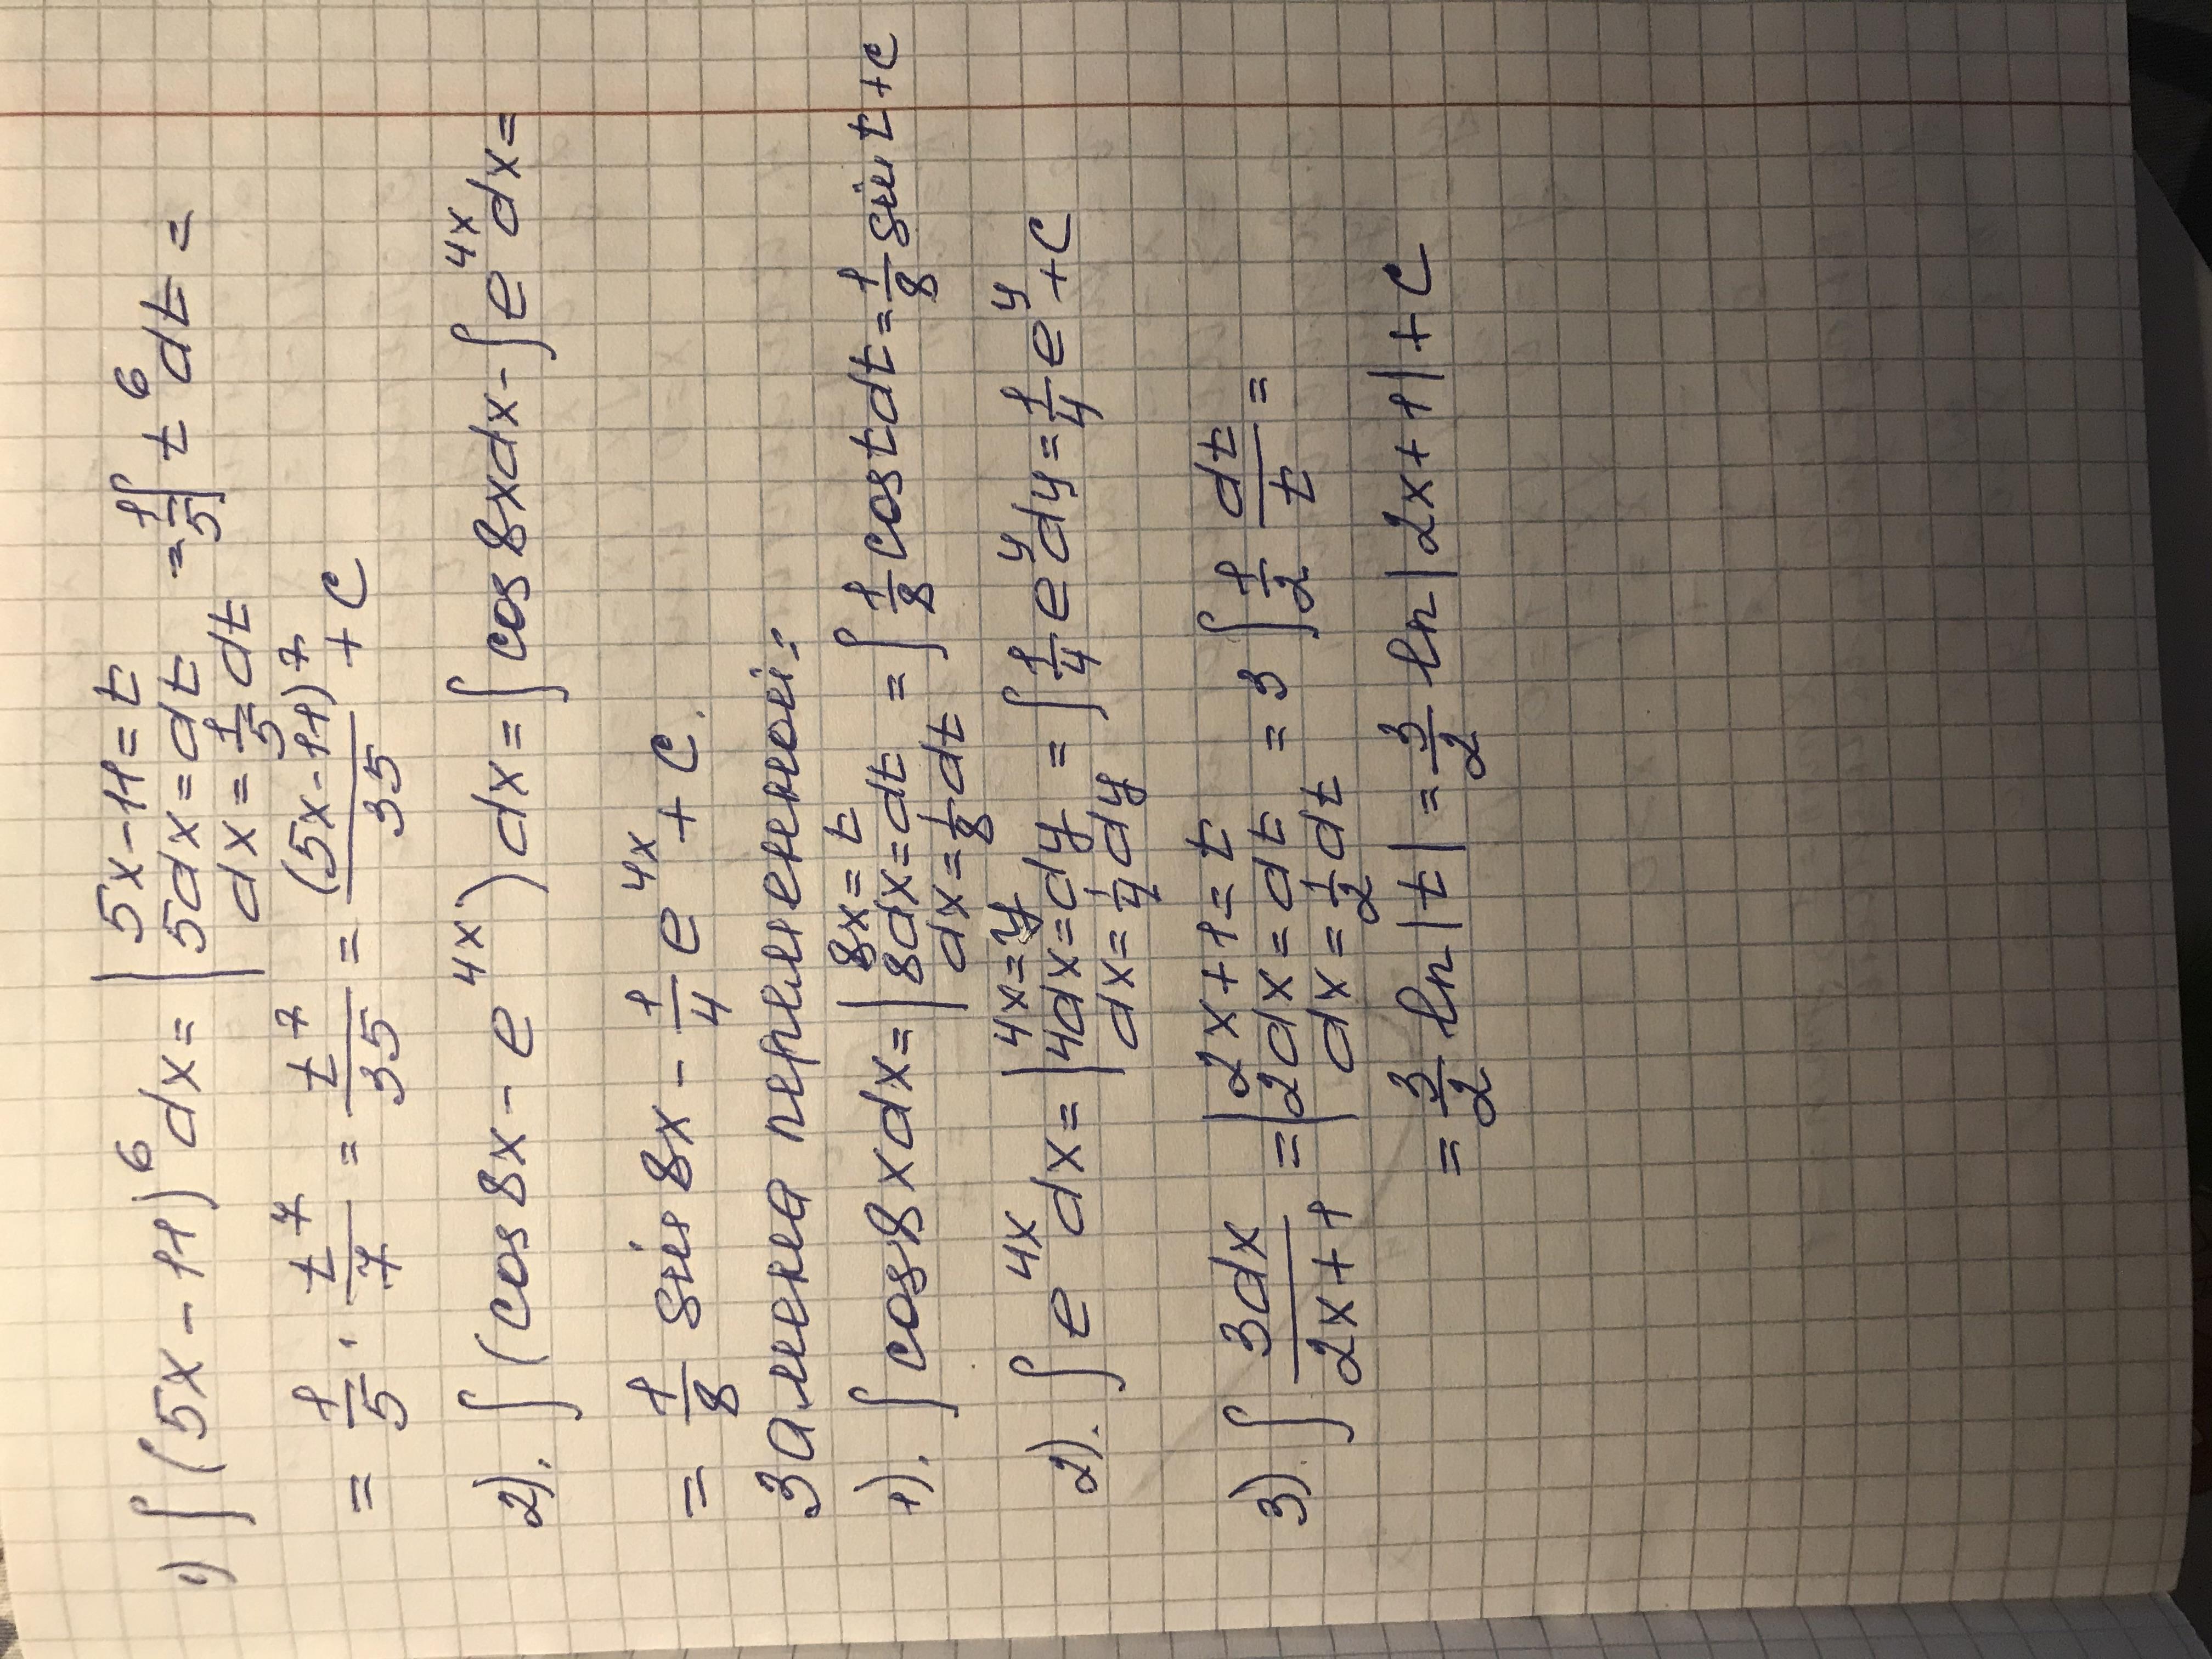 1) ∫(5x-11)⁶dx = |5x-11=t
5dx=dt
dx=1/5dt = 1/5∫t⁶dt =
= 1/5 · t⁷/7 = t⁷/35 = (5x-11)⁷/35 + C
2). ∫(cos8x-e⁴ˣ)dx = ∫cos8xdx - ∫e⁴ˣdx =
= 1/8 sin8x - 1/4 e⁴ˣ + C.
Замена переменной:
1). ∫cos8xdx = |8x=t
8dx=dt
dx=1/8dt = ∫1/8 costdt = 1/8 sint + C
2). ∫e⁴ˣdx = |4x=y
4dx=dy
dx=1/4dy = ∫1/4 eʸdy = 1/4 eʸ + C
3) ∫3dx/(2x+1) = |2x+1=t
2dx=dt
dx=1/2dt = 3∫1/2 dt/t =
= 3/2 ln|t| = 3/2 ln|2x+1| + C